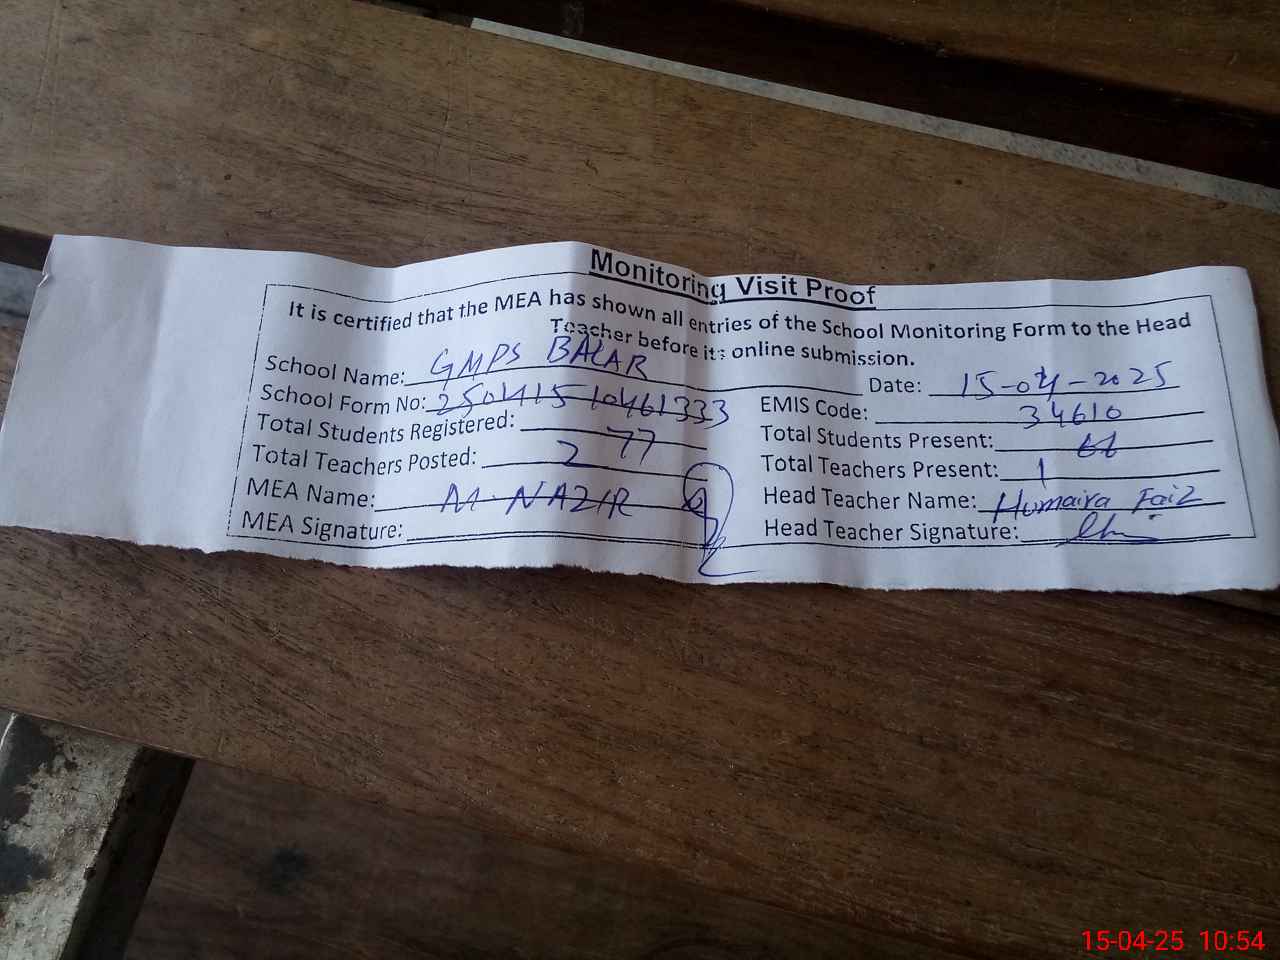 Monitoring Visit Proof
It is certified that the MEA has shown all entries of the School Monitoring Form to the Head
Teacher before its online submission.
School Name: GMPS BALAR Date: 15-04-2025
School Form No: 25041510461333 EMIS Code: 34610
Total Students Registered: 77 Total Students Present:
Total Teachers Posted: 2 Total Teachers Present: 1
MEA Name: M. NAZIR Head Teacher Name: Humaira Faiz
MEA Signature: Head Teacher Signature:
15-04-25 10:54